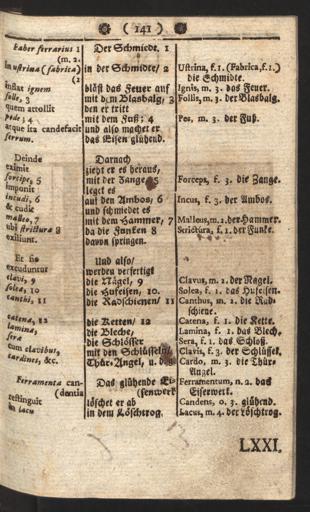 ( 141 )
Faber ferrarius 1
(m. 2.
in ustrina (fabrica)
(2
inflat ignem
folle, 3
quem attollit
pede; 4
atque ita candefacit
ferrum.
Deinde
eximit
forcipe, 5
imponit
incudi, 6
& cudit
malleo, 7
ubi strictura 8
exiliunt.
Et sic
excuduntur
clavi, 9
solea, 10
canthi, 11
catena, 12
lamina,
sera
cum clavibus,
cardines, &c.
Ferramenta can-
(dentia
restinguit
in lacu
Der Schmiedt. 1
in der Schmidte/ 2
bläst das Feuer auf
mit dem Blasbalg, 3
den er tritt
mit dem Fuß; 4
und also machet er
das Eisen glühend.
Darnach
zieht er es heraus,
mit der Zange 5
legt es
auf den Ambos, 6
und schmiedet es
mit dem Hammer, 7
da die Funken 8
davon springen.
Und also/
werden verfertigt
die Nägel, 9
die Hufeisen, 10
die Radschienen/ 11
die Ketten/ 12
die Bleche,
die Schlösser
mit den Schlüsseln,
Thür-Angel, u.
Das glühende Ei-
(senwerk
löschet er ab
in dem Löschtrog.
Ustrina, f. 1. (Fabrica, f. 1.)
die Schmidte.
Ignis, m. 3. das Feuer.
Follis, m. 3. der Blasbalg.
Pes, m. 3. der Fuß.
Forceps, f. 3. die Zange.
Incus, f. 3. der Ambos.
Malleus, m. 2. der Hammer.
Strictura, f. 1. der Funke.
Clavus, m. 2. der Nagel.
Solea, f. 1. das Hufeisen.
Canthus, m. 2. die Rad-
schiene.
Catena, f. 1. die Kette.
Lamina, f. 1. das Blech.
Sera, f. 1. das Schloß.
Clavis, f. 3. der Schlüssel.
Cardo, m. 3. die Thür-
Angel.
Ferramentum, n. 2. das
Eiserwerk.
Candens, o. 3. glühend.
Lacus, m. 4. der Löschtrog.
LXXI.